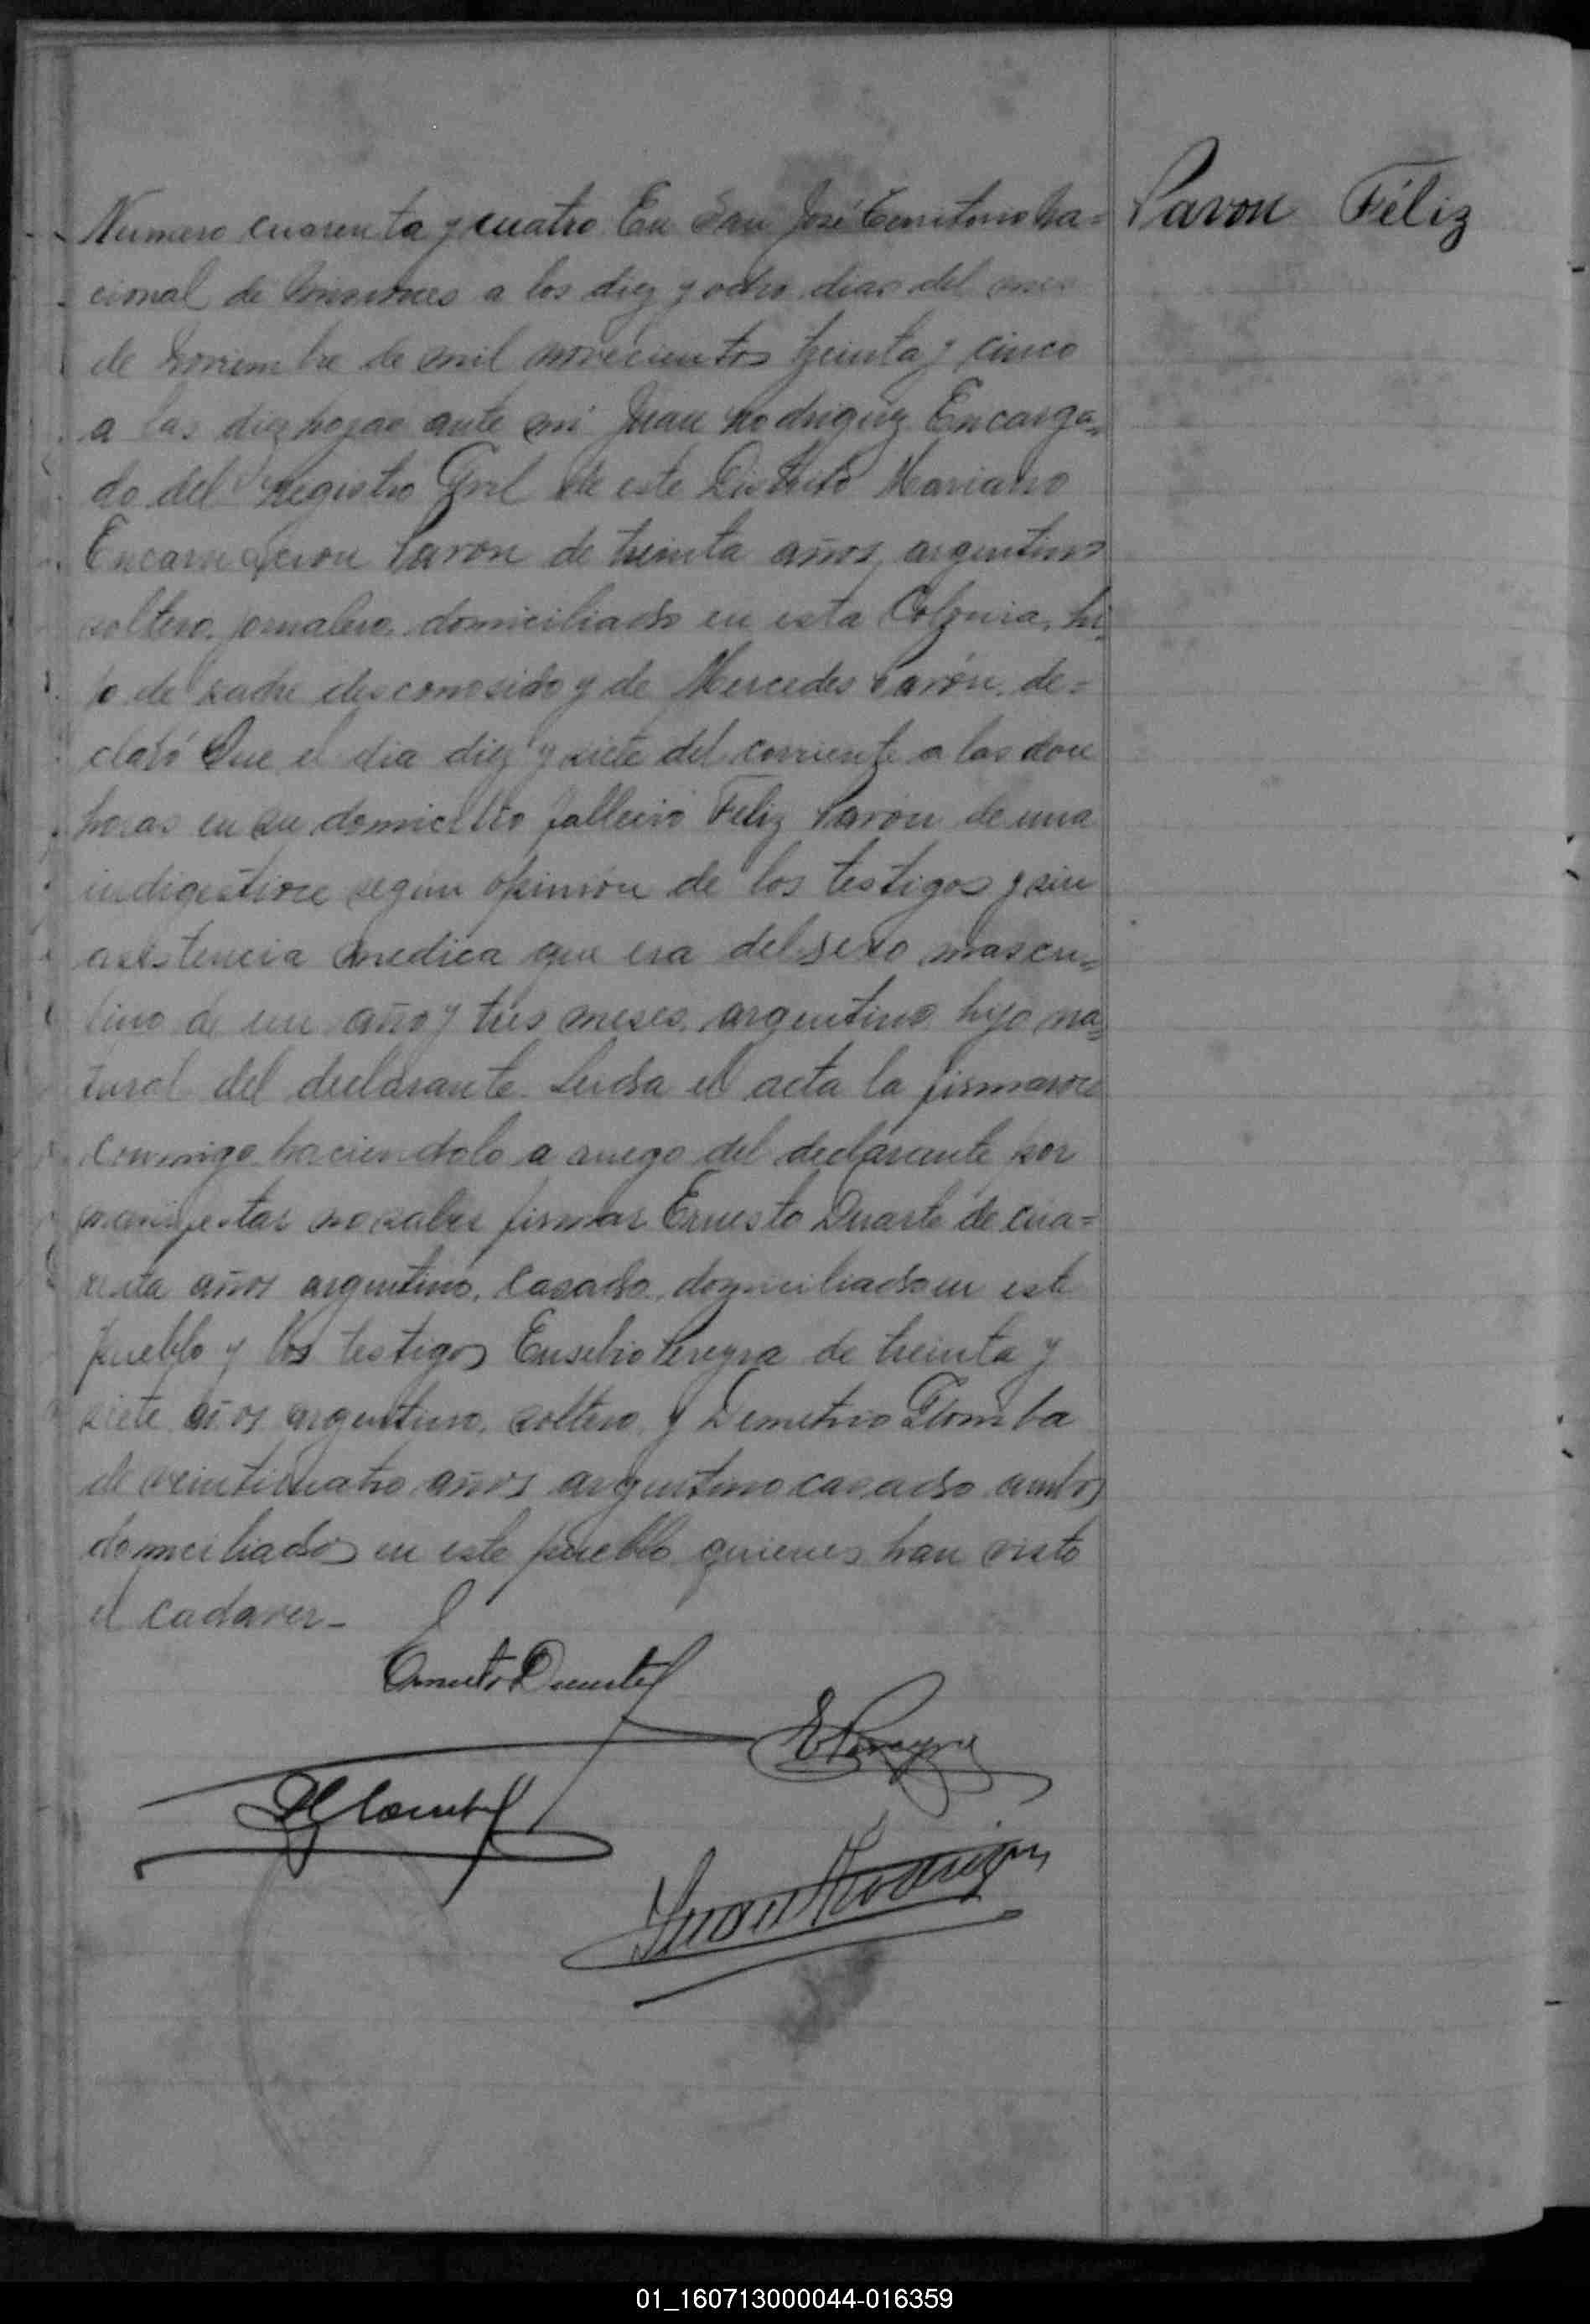 Numero cuarenta y cuatro En San José Territorio Na=
cional de Misiones a los diez y ocho dias del mes
de Noviembre de mil novecientos treinta y cinco
a las diez horas ante mi Juan Rodriguez Encarga=
do del Registro Gral de este Distrito Mariano
Encarnacion Pavon de treinta años, argentino
soltero, jornalero, domiciliado en esta Colonia, hi=
jo de padre desconosido y de Mercedes Pavón, de=
claró Que el dia diez y siete del corriente a las doce
horas en su domicilio falleció Feliz Pavón de una
indigestion según opinión de los testigos y sin
asistencia medica que era del sexo mascu=
lino de un año y tres meses, argentino hijo na=
tural del declarante. Leida el acta la firmaron
conmigo haciendolo a ruego del declarante por
manifestar no saber firmar Ernesto Duarte de cua=
renta años argentino, casado, domiciliado en este
pueblo y los testigos Eusebio Pereyra de treinta y
siete años argentino, soltero y Demetrio Glomba
de veinticuatro años argentino casado ambos
domiciliados en este pueblo quienes han visto
el cadaver_
Pavon Féliz
Ernesto Duarte
E Pereyra
DGlomba
Juan Rodriguez
01_160713000044-016359